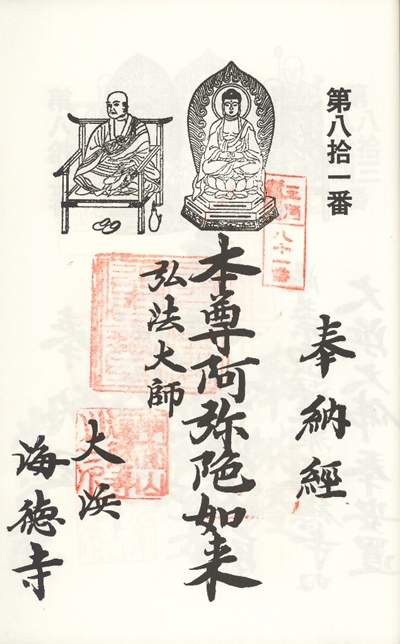 第八拾一番
奉納經
三河
八十一番
本尊阿弥陀如来
弘法大師
大浜
海徳寺